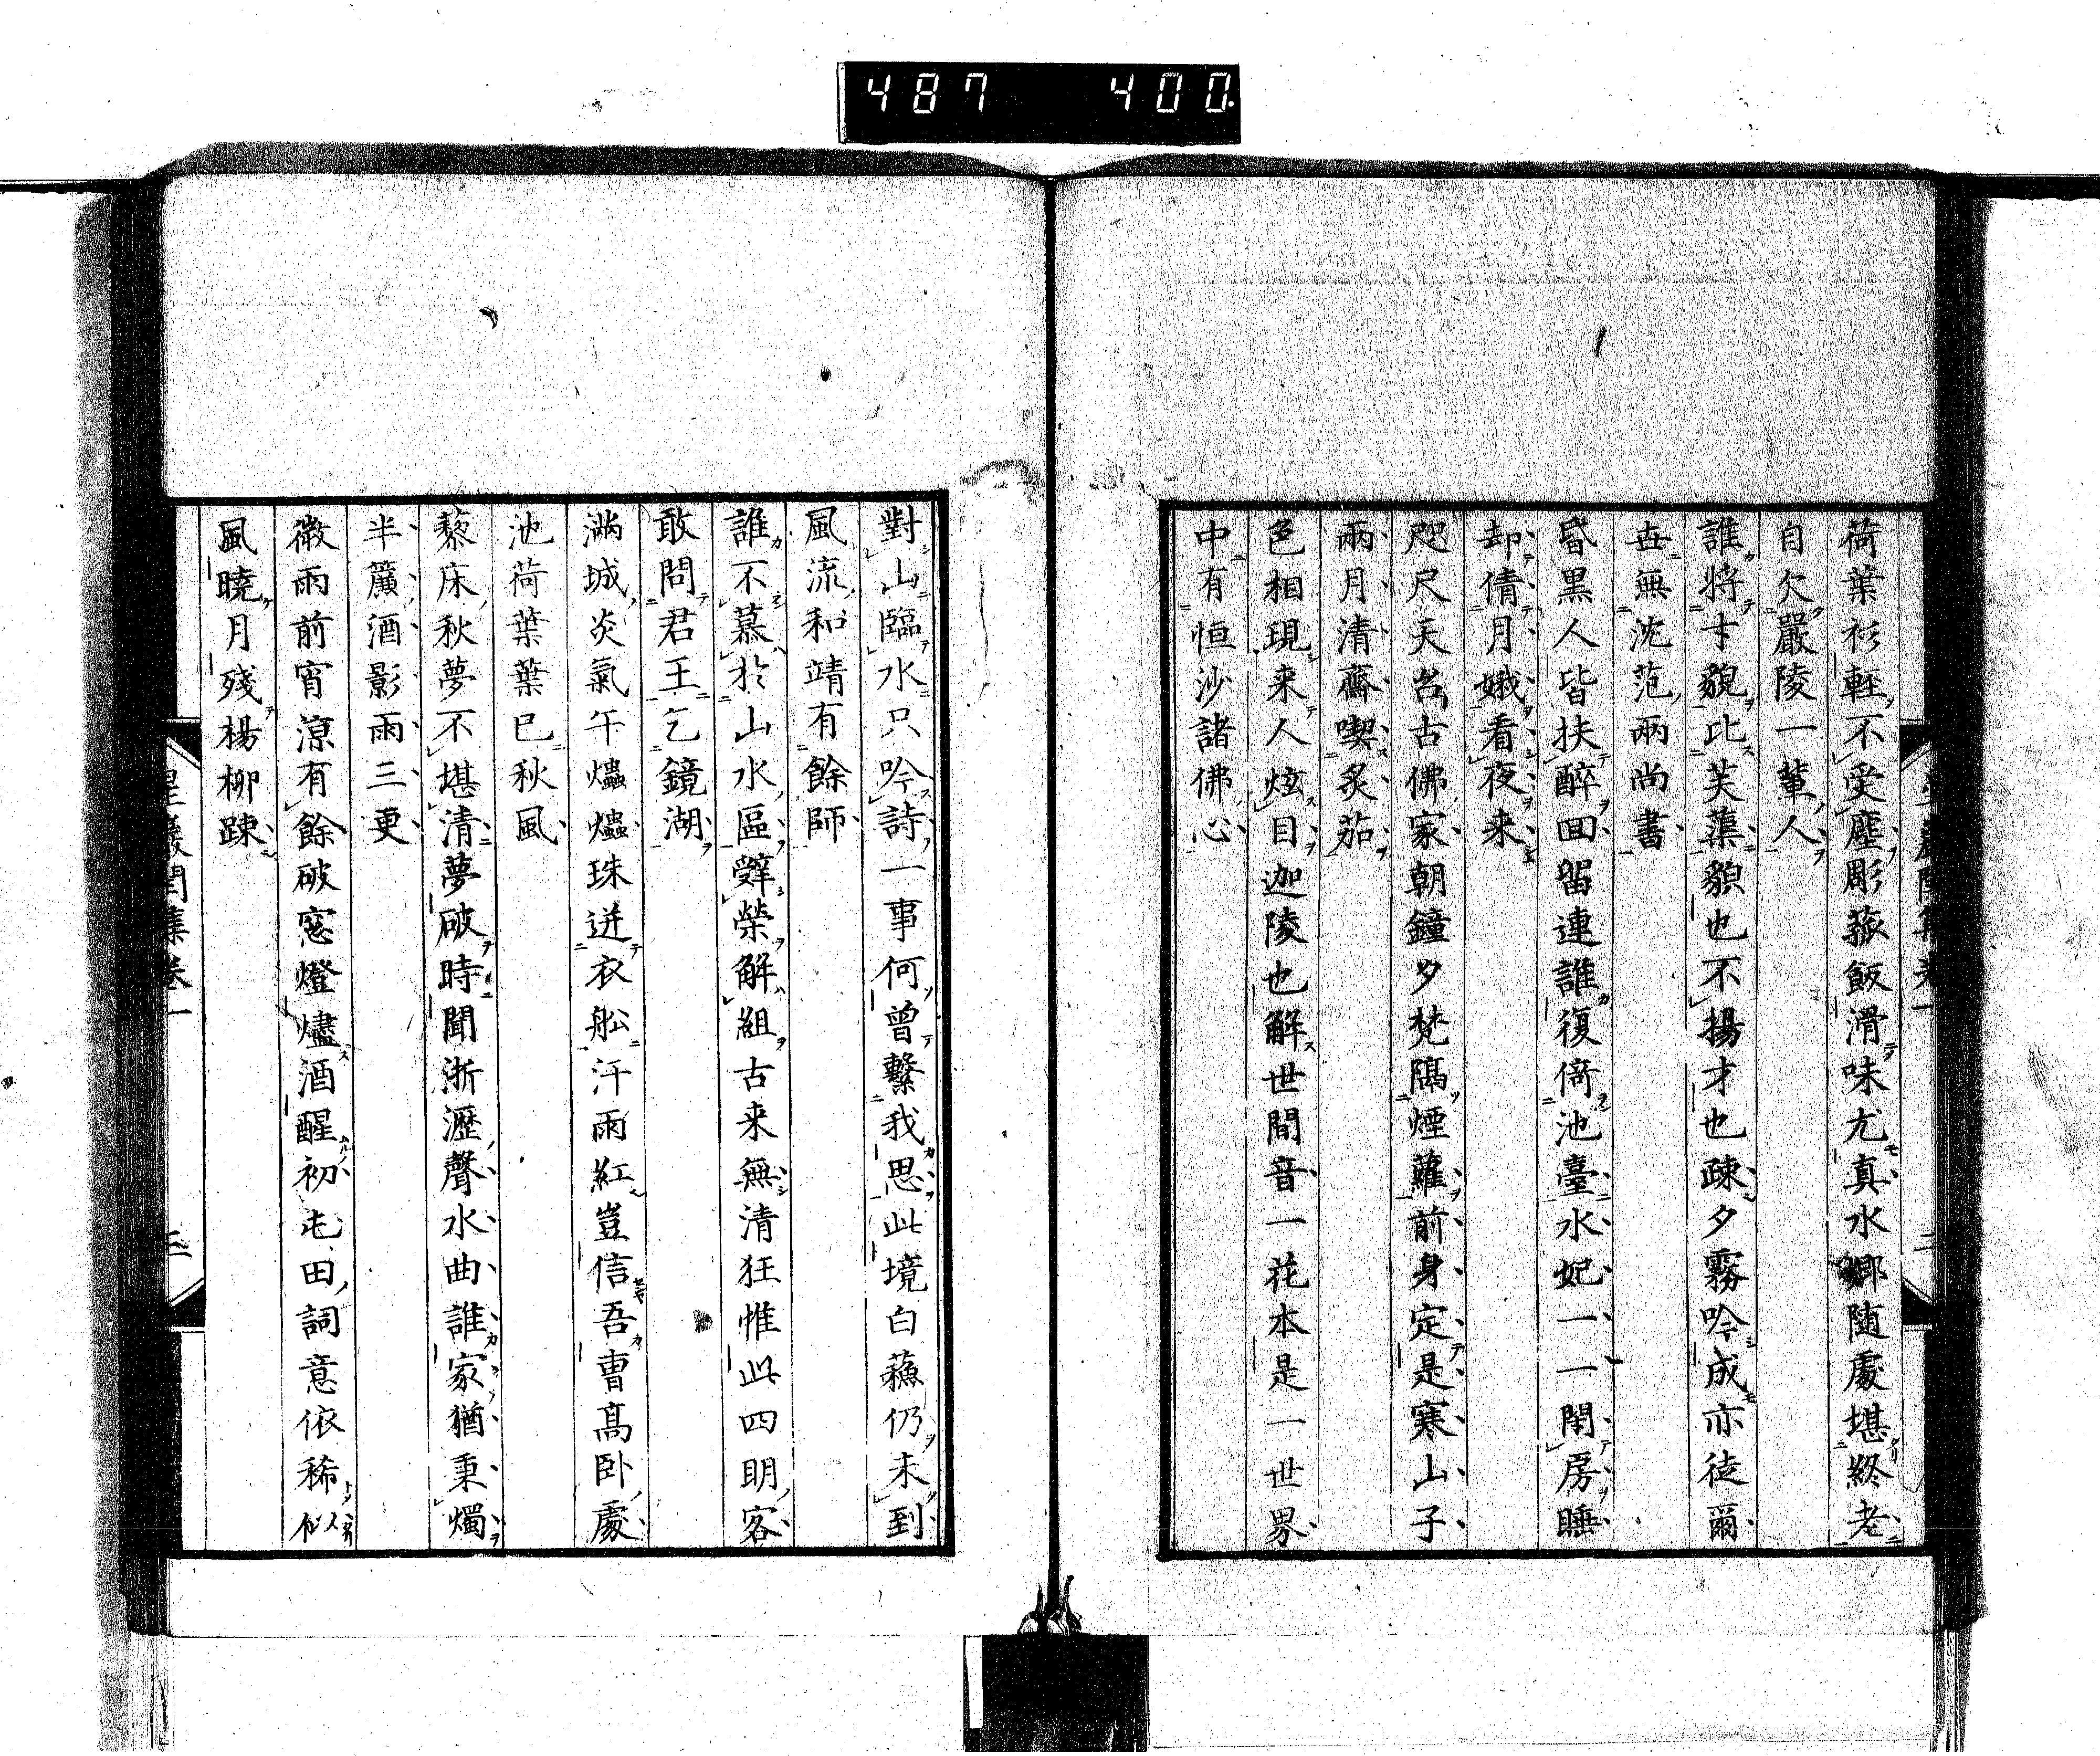 487 400.
荷葉衫輕不受塵彫菰飯滑味尤真水鄉随處堪終老
自欠嚴陵一輩人
誰將才貌比芙蕖貌也不揚才也疎夕霧吟成亦徒爾
世無沈范兩尚書
昏黒人皆扶醉回留連誰復倚池臺水妃一一閑房睡
却倩月娥看夜来
咫尺天台古佛家朝鐘夕梵隔煙蘿前身定是寒山子
兩月清齋喫炙茄
色相現来人炫目迦陵也解世間音一花本是一世界
中有恒沙諸佛心
對山臨水只吟詩一事何曾繫我思此境白蘓仍未到
風流和靖有餘師
誰不慕於山水區辭榮解組古来無清狂惟此四明客
敢問君王乞鏡湖
滿城炎氣午爞爞珠迸衣舩汗雨紅豈信吾曹髙卧處
池荷葉葉已秋風
藜床秋夢不堪清夢破時聞淅瀝聲水曲誰家猶秉燭
半簾酒影雨三更
微雨前宵涼有餘破窓燈燼酒醒初屯田詞意依稀似
風曉月殘楊柳踈
星巖閏集卷一
三